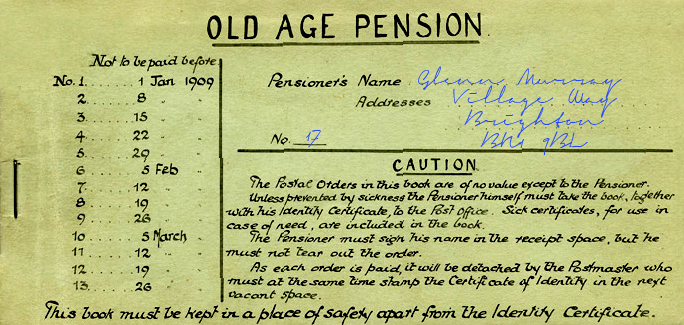 OLD AGE PENSION
Not to be paid before
No. 1. 1 Jan 1909
2 8 " "
3. 15 " "
4. 22 " "
5. 29 " "
6 5 Feb "
7. 12 " "
8 19 " "
9. 26 " "
10 5 March "
11 12 " "
12 19 " "
13. 26 " "
Pensioner's Name Glenn Murray
Addresses Village Way
Brighton
BN1 9BL
No. 17
CAUTION
The Postal Orders in this book are of no value except to the Pensioner.
Unless prevented by sickness the Pensioner himself must take the book, together
with his Identity Certificate, to the Post Office. Sick certificates, for use in
case of need, are included in the book.
The Pensioner must sign his name in the receipt space, but he
must not tear out the order.
As each order is paid, it will be detached by the Postmaster who
must at the same time stamp the Certificate of Identity in the next
vacant space.
This book must be kept in a place of safety apart from the Identity Certificate.